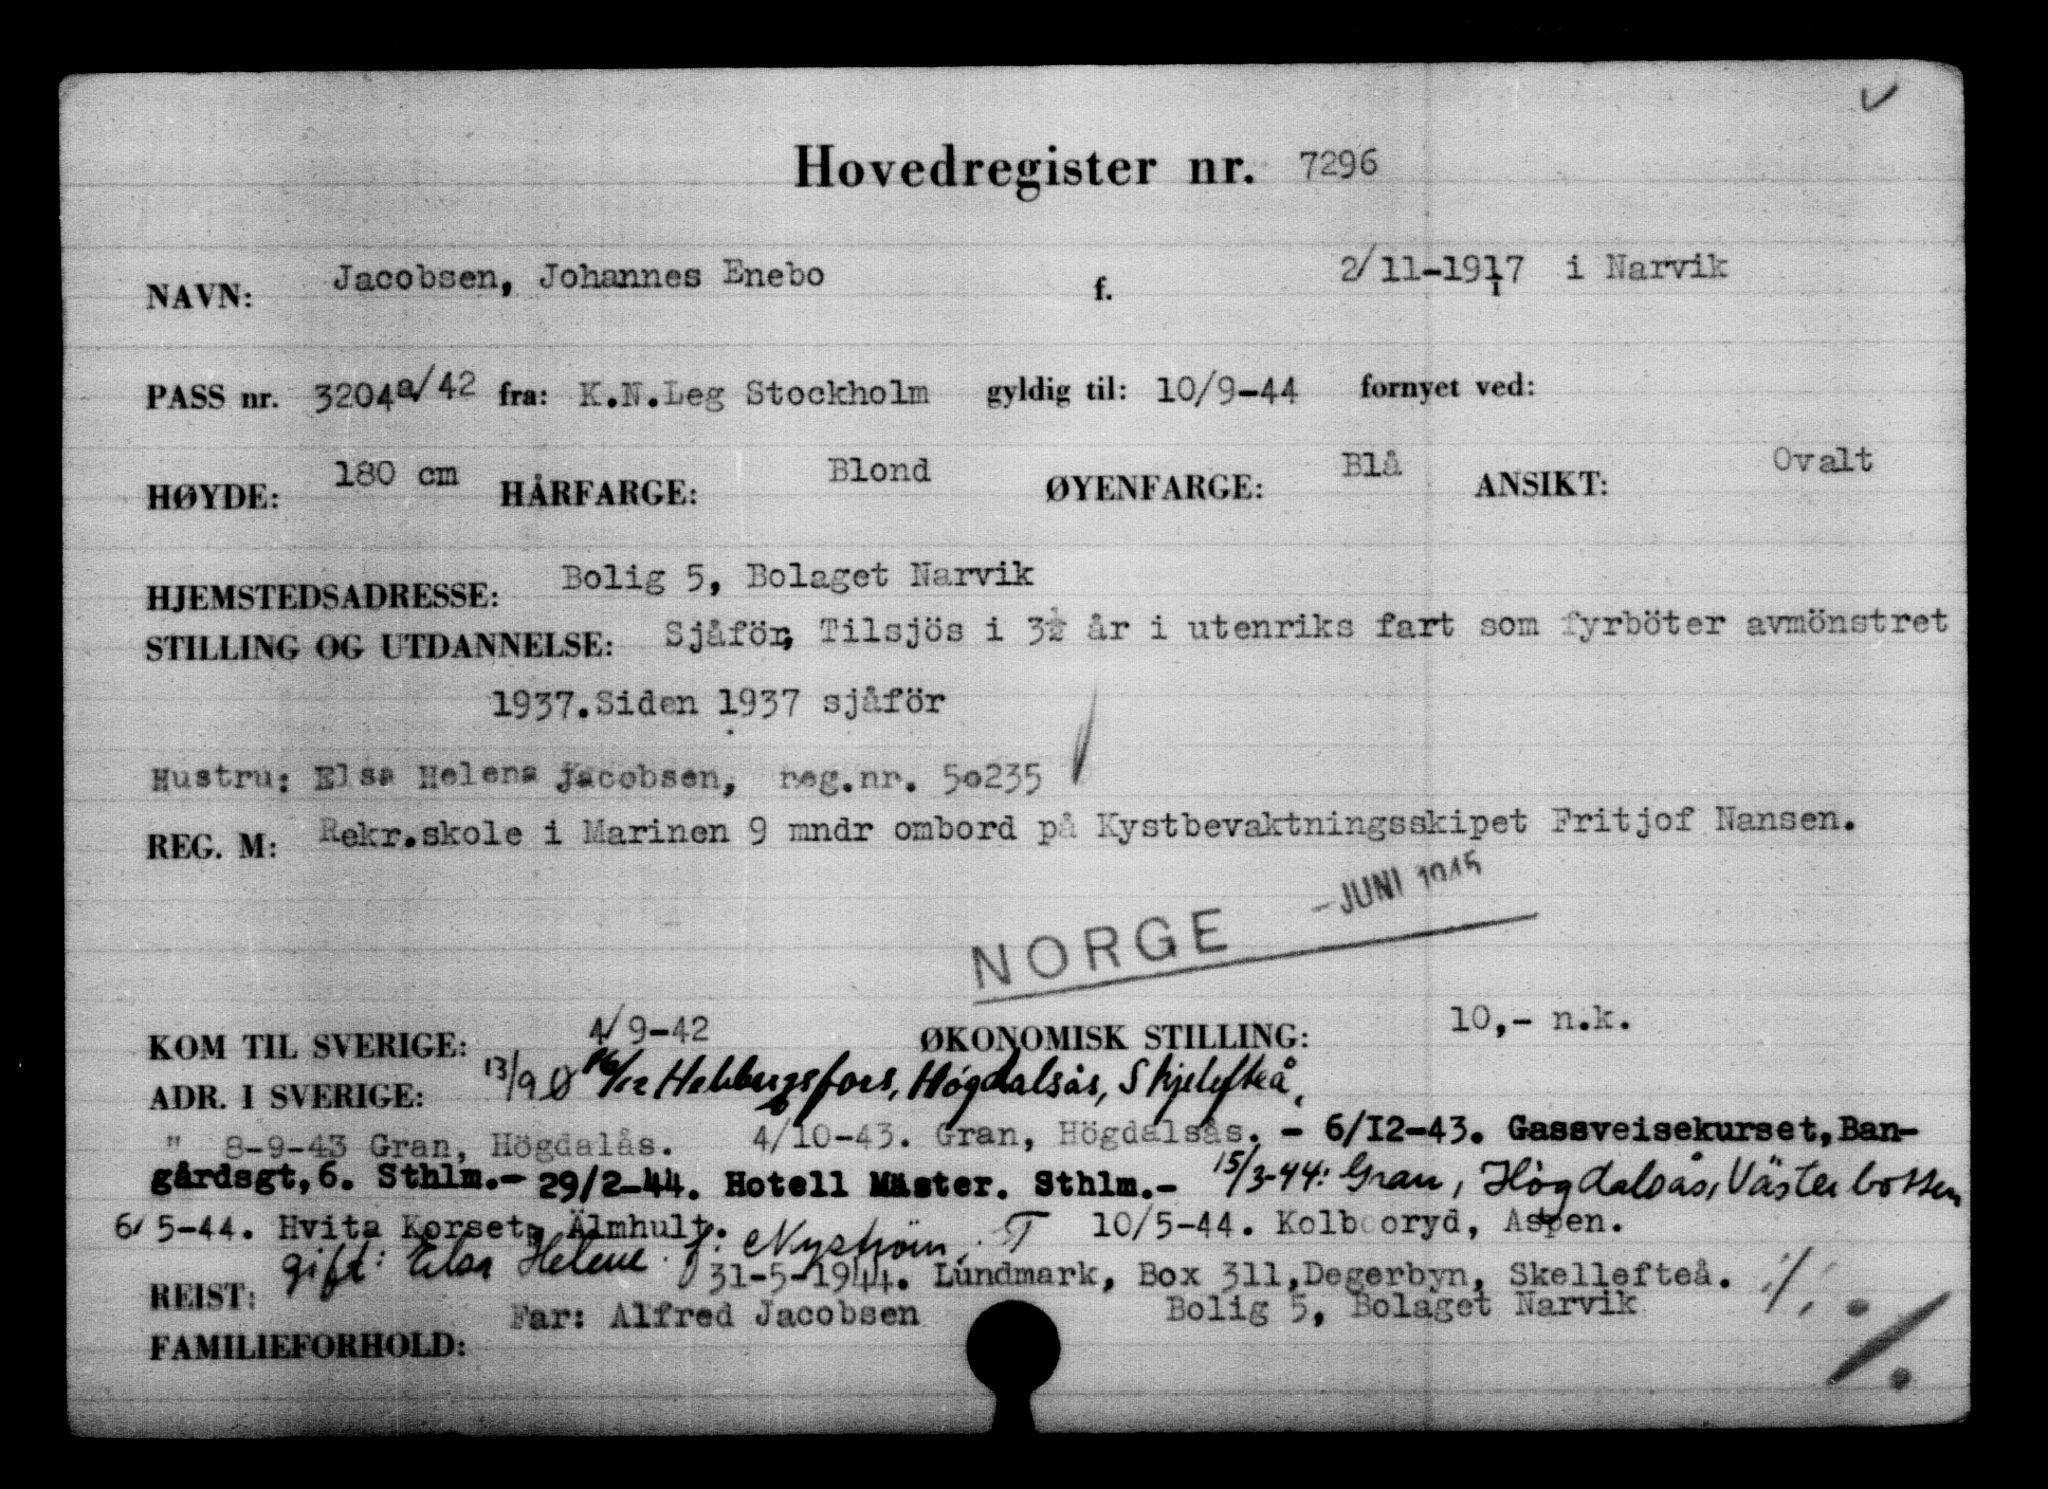 Hovedregister nr. 7296
NAVN: Jacobsen, Johannes Enebo f. 2/11-1917 i Narvik
PASS nr. 3204a/42 fra: K.N.Leg Stockholm gyldig til: 10/9-44 fornyet ved:
HØYDE: 180 cm HÅRFARGE: Blond ØYENFARGE: Blå ANSIKT: Ovalt
HJEMSTEDSADRESSE: Bolig 5, Bolaget Narvik
STILLING OG UTDANNELSE: Sjåför, Tilsjös i 3½ år i utenriks fart som fyrböter avmönstret
1937. Siden 1937 sjåför
Hustru: Elsa Helena Jacobsen, reg.nr. 50235
REG. M: Rekr.skole i Marinen 9 mndr ombord på Kystbevaktningsskipet Fritjof Nansen.
- JUNI 1945
NORGE
KOM TIL SVERIGE: 4/9-42 ØKONOMISK STILLING: 10,- n.k.
ADR. I SVERIGE: 13/9 Ø 16/12 Høgdalsås, Skjelefteå,
" 8-9-43 Gran, Högdalås. 4/10-43. Gran, Högdalsås. - 6/12-43. Gassveisekurset, Ban-
gårdsgt, 6. Sthlm.- 29/2-44. Hotell Mäster. Sthlm.- 15/3-44: Gran, Høgdalsås, Västerbotten
6/5-44. Hvita Korset, Älmhult. 10/5-44. Kolbooryd, Aspen.
gift: Elsa Helene f: Nyström. T
REIST: 31-5-1944. Lundmark, Box 311, Degerbyn, Skellefteå. ./.
FAMILIEFORHOLD: Far: Alfred Jacobsen Bolig 5, Bolaget Narvik ./.